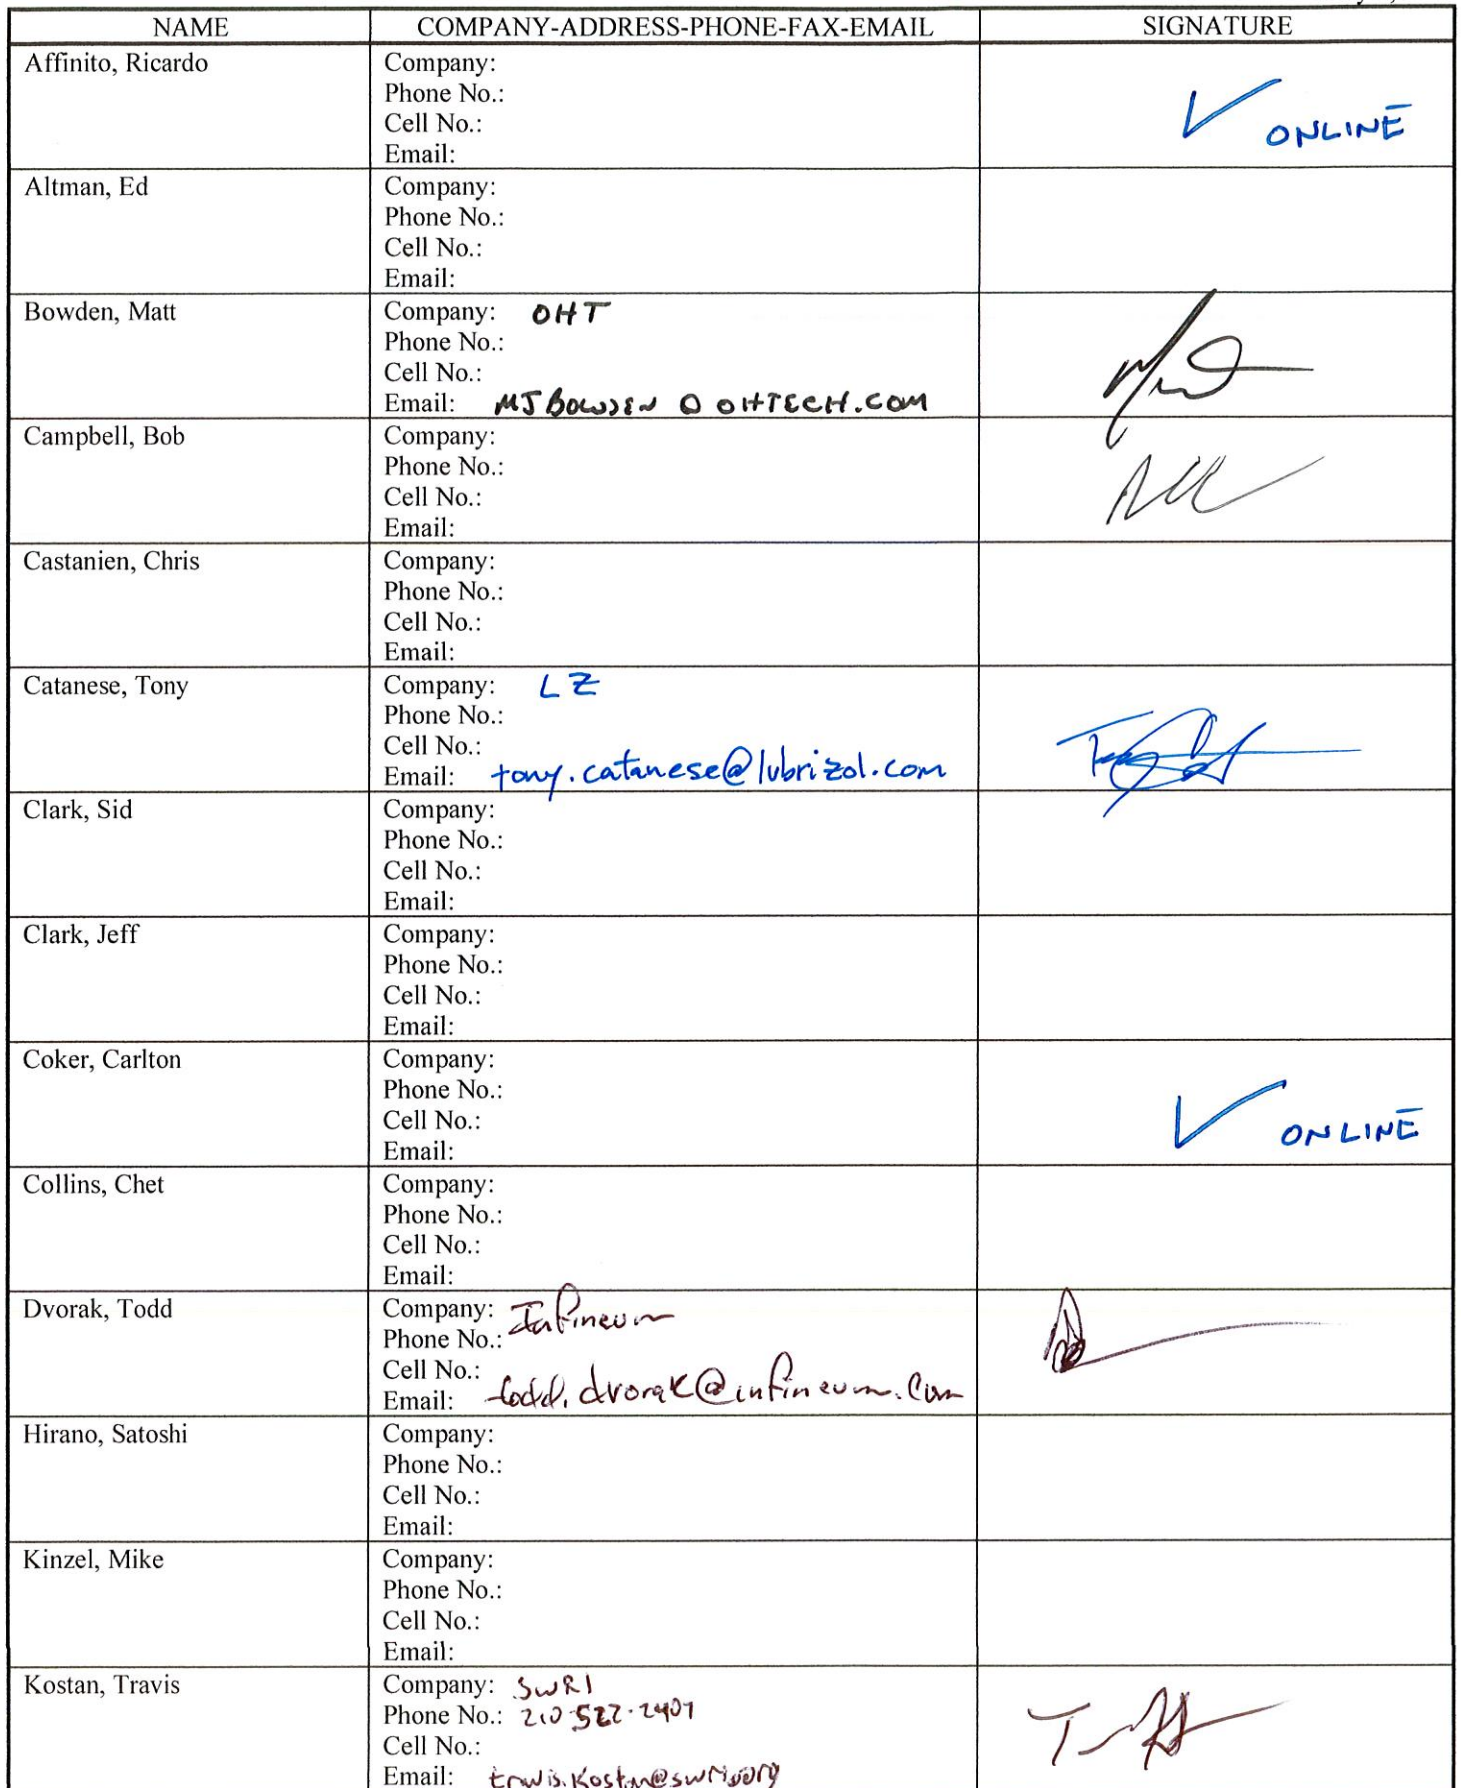 NAME COMPANY-ADDRESS-PHONE-FAX-EMAIL SIGNATURE
Affinito, Ricardo Company:
Phone No.:
Cell No.: ✓ ONLINE
Email:
Altman, Ed Company:
Phone No.:
Cell No.:
Email:
Bowden, Matt Company: OHT
Phone No.:
Cell No.:
Email: MJBOWDEN @ OHTECH.COM
Campbell, Bob Company:
Phone No.:
Cell No.:
Email:
Castanien, Chris Company:
Phone No.:
Cell No.:
Email:
Catanese, Tony Company: LZ
Phone No.:
Cell No.:
Email: tony.catanese@lubrizol.com
Clark, Sid Company:
Phone No.:
Cell No.:
Email:
Clark, Jeff Company:
Phone No.:
Cell No.:
Email:
Coker, Carlton Company:
Phone No.:
Cell No.: ✓ ONLINE
Email:
Collins, Chet Company:
Phone No.:
Cell No.:
Email:
Dvorak, Todd Company: Infineum
Phone No.:
Cell No.:
Email: todd.dvorak@infineum.com
Hirano, Satoshi Company:
Phone No.:
Cell No.:
Email:
Kinzel, Mike Company:
Phone No.:
Cell No.:
Email:
Kostan, Travis Company: SWRI
Phone No.: 210-522-2407
Cell No.:
Email: travis.kostan@swri.org